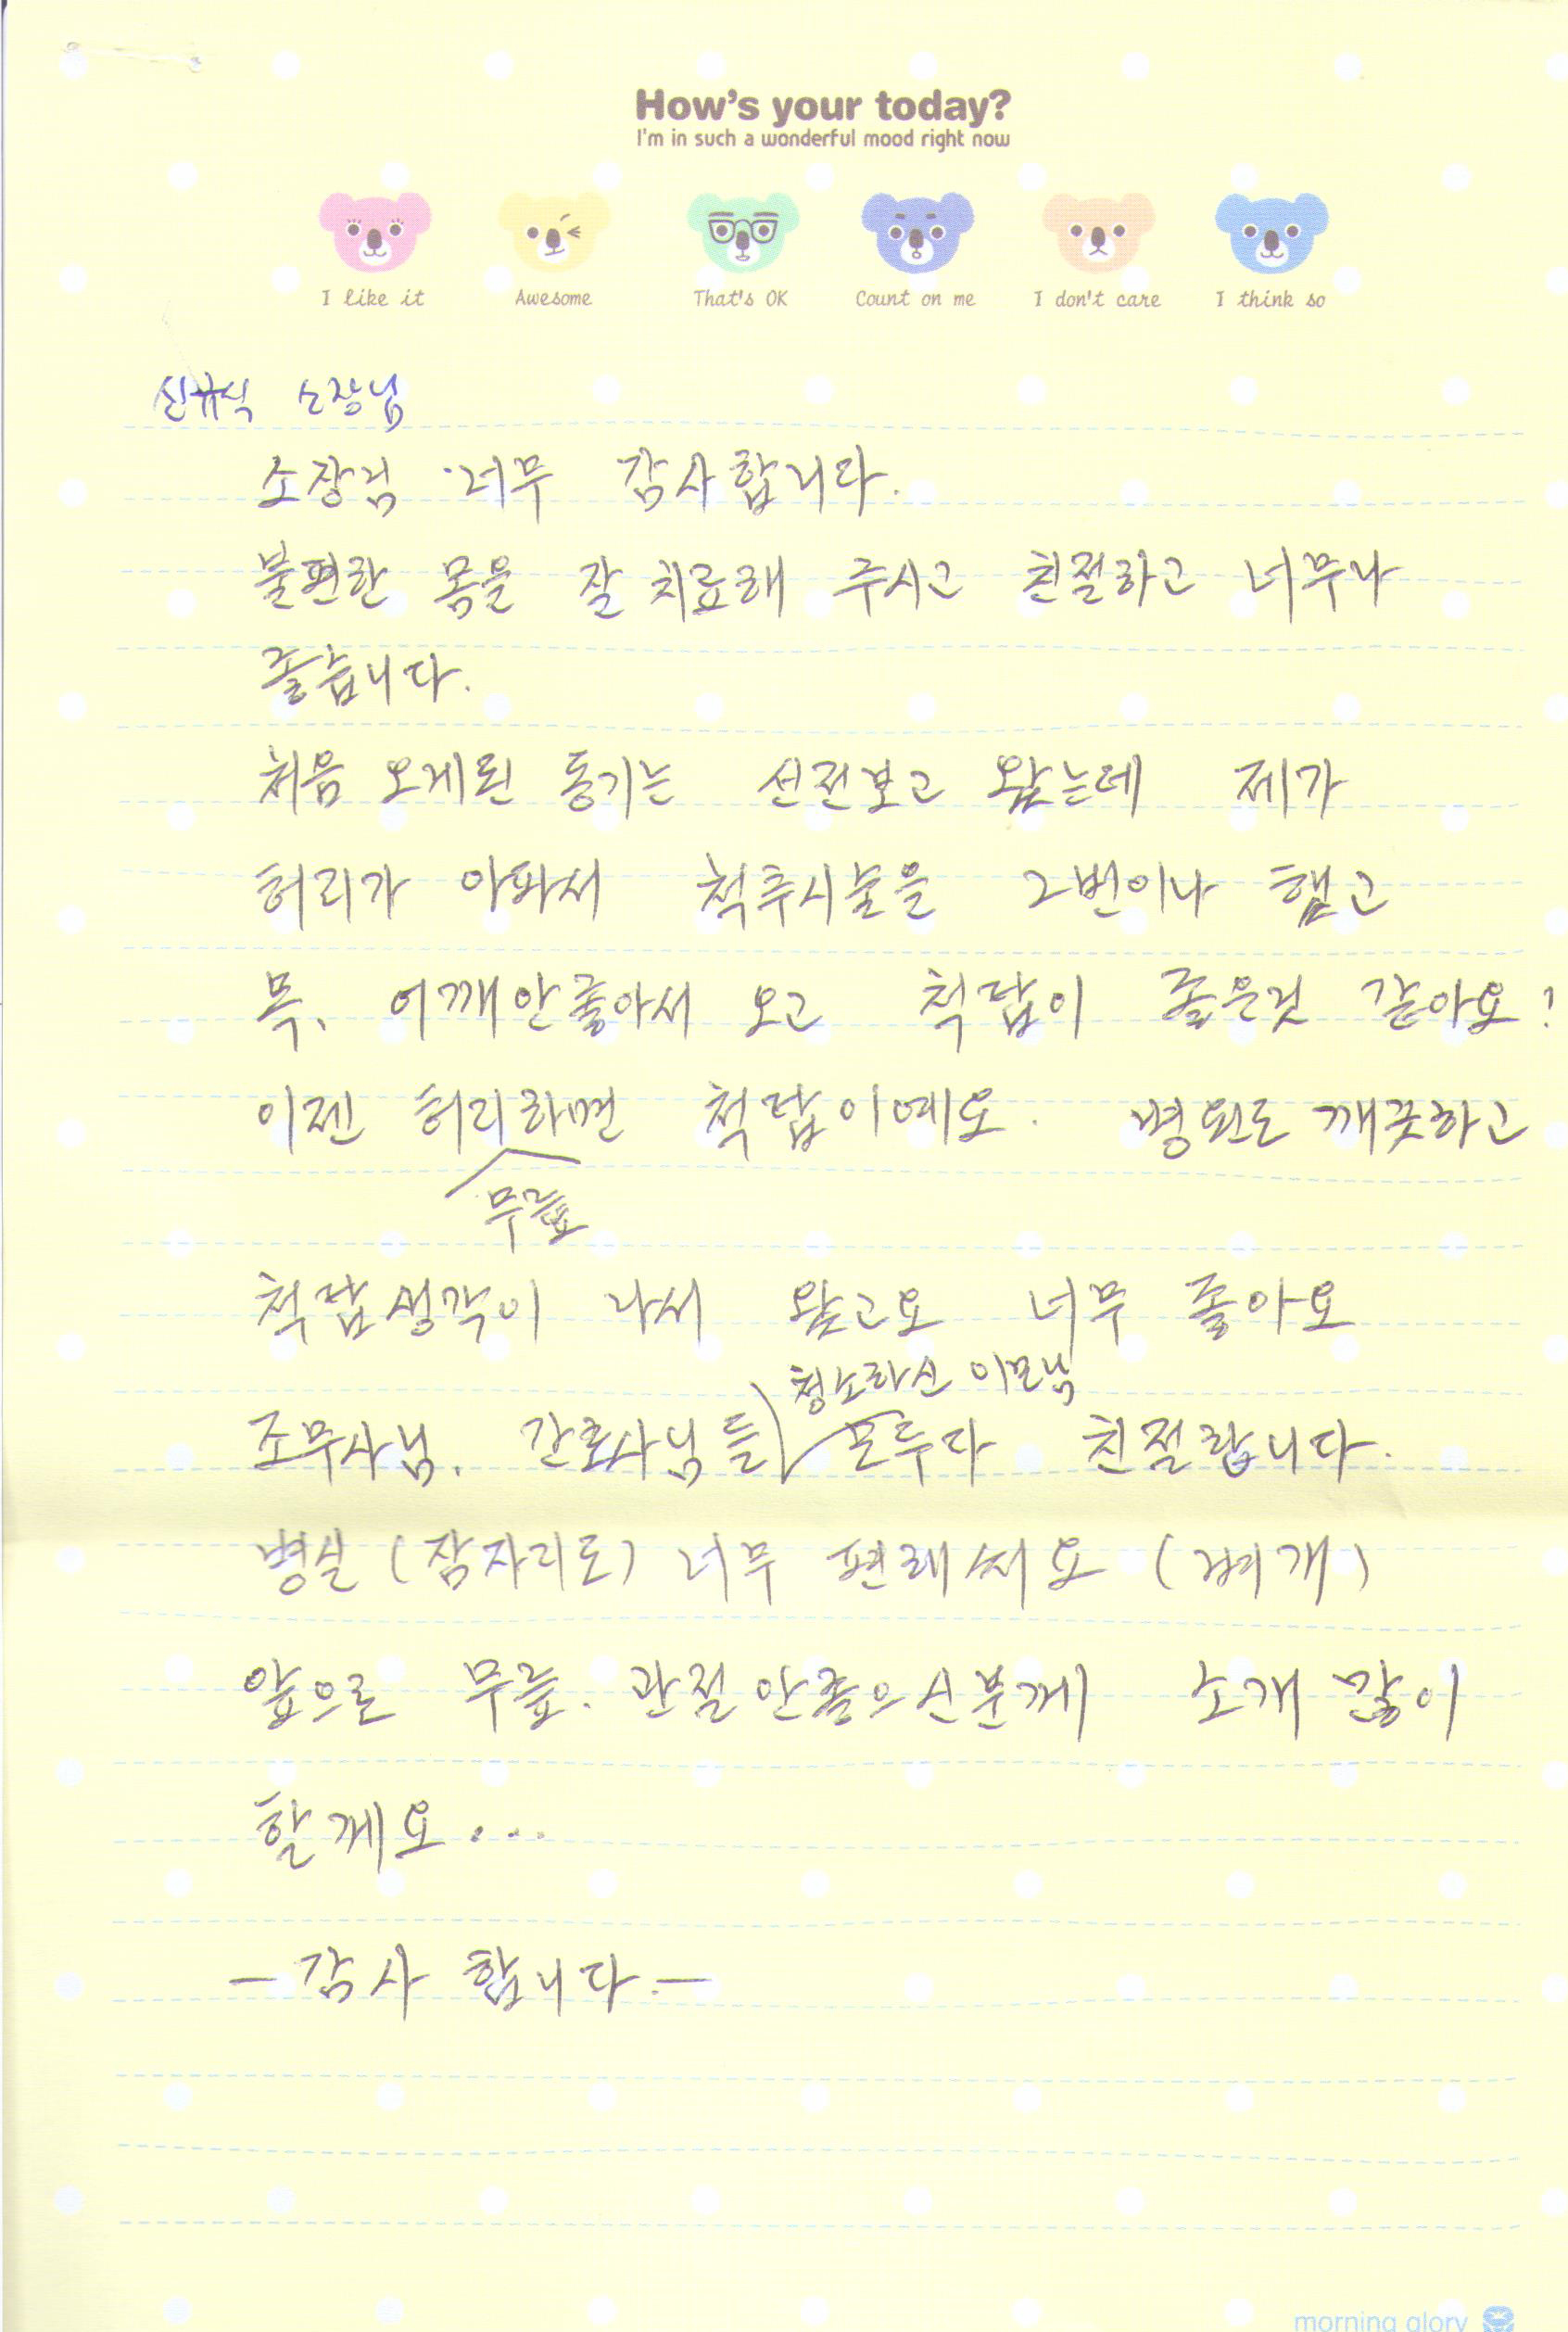 How's your today?
I'm in such a wonderful mood right now
I like it Awesome That's OK Count on me I don't care I think so
신규식 소장님
소장님 너무 감사합니다.
불편한 몸을 잘 치료해 주시고 친절하고 너무나
좋습니다.
처음 오게된 동기는 선전보고 왔는데 제가
허리가 아파서 척추시술을 2번이나 했고
목, 어깨 안좋아서 오고 척탑이 좋은것 같아요!
이젠 허리하면 척탑이예요. 병원도 깨끗하고
무릎
척탑생각이 나서 왔고요 너무 좋아요
청소하신 이모님
조무사님, 간호사님들 모두다 친절합니다.
병실 (잠자리도) 너무 편해써요 (벼개)
앞으로 무릎. 관절 안좋으신분께 소개 많이
할께요...
- 감사 합니다. -
morning glory